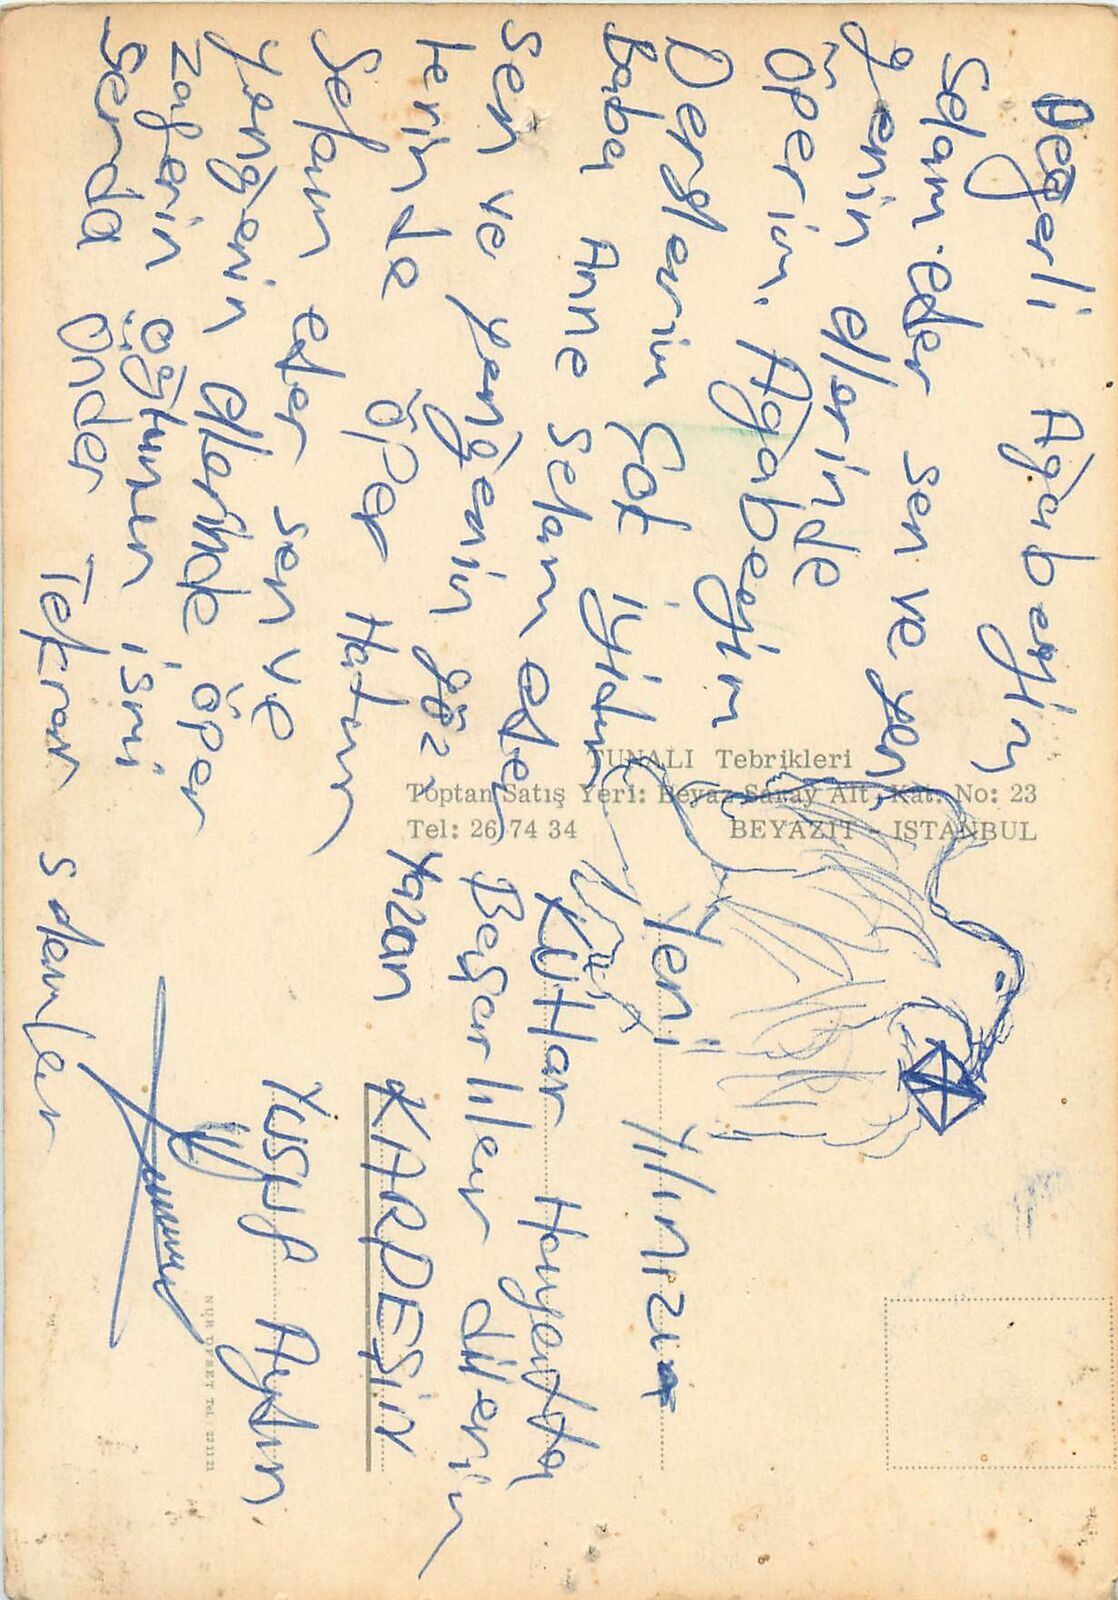 Değerli Ağabeyim
Selam eder sen ve yen
genin ellerinde
öperim. Ağabeyim
Derslerim Çok iyidir
Baba Anne selam eder
sen ve yengenin göz
lerinde öper Hatun
selam eder sen ve
yengenin ellerinde öper
zaferin oğlunun ismi
Serda Önder Tekrar selamlar
Yeni Yılınızı
KUtlar Hayatta
Başarılar dilerim
Yazan KARDEŞİN
Yusuf Aydın
TUNALI Tebrikleri
Toptan Satış Yeri: Beyaz Saray Alt Kat. No: 23
Tel: 26 74 34 BEYAZIT - ISTANBUL
NUR OFSET Tel. 221121